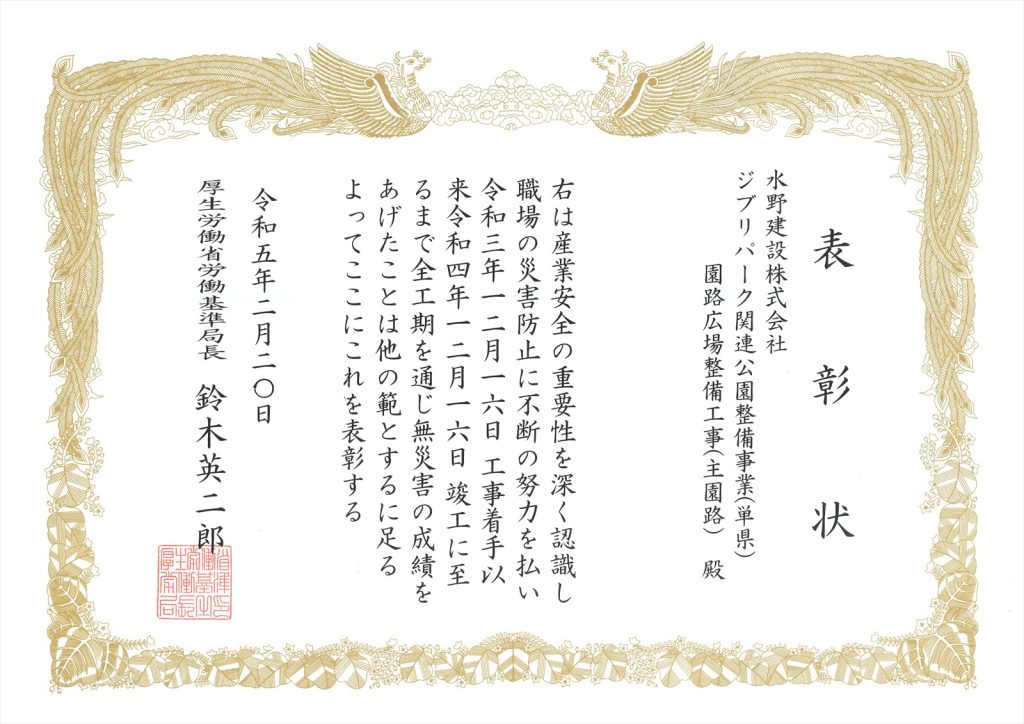 表彰状
水野建設株式会社
ジブリパーク関連公園整備事業(単県)
園路広場整備工事(主園路) 殿
右は産業安全の重要性を深く認識し
職場の災害防止に不断の努力を払い
令和三年一二月一六日 工事着手以
来令和四年一二月一六日 竣工に至
るまで全工期を通じ無災害の成績を
あげたことは他の範とするに足る
よってここにこれを表彰する
令和五年二月二〇日
厚生労働省労働基準局長 鈴木英二郎